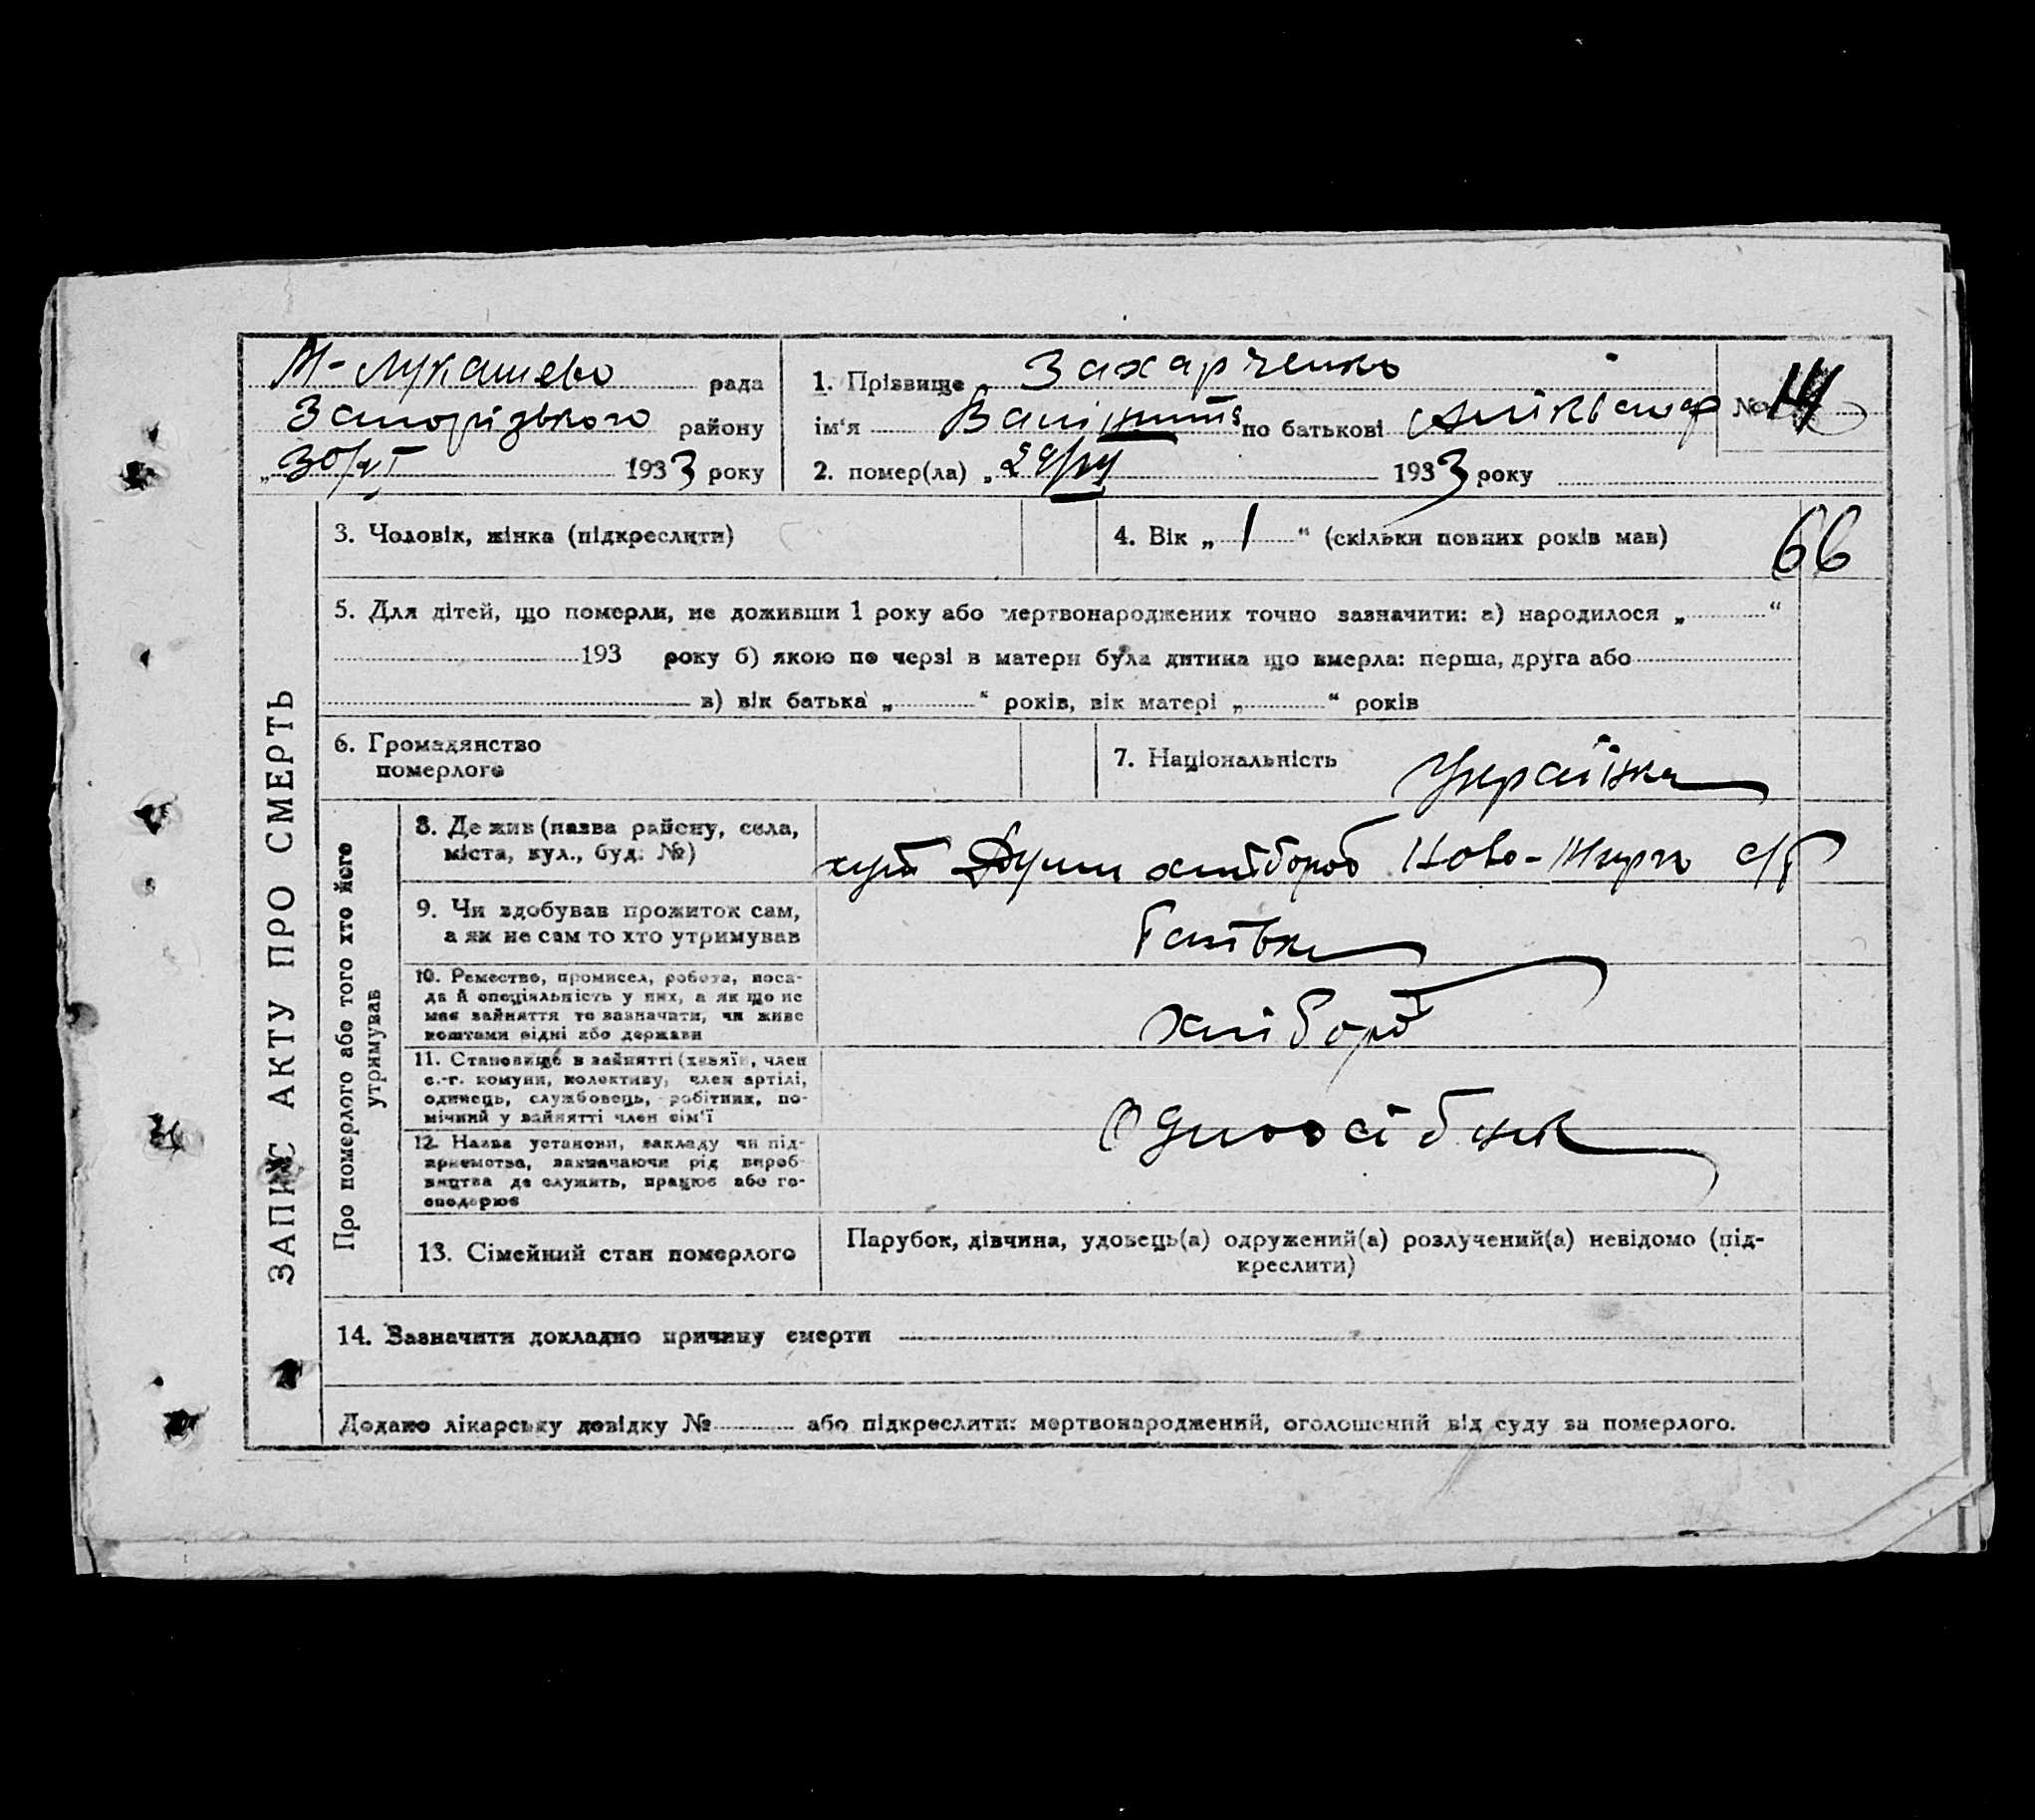 М-Лукашево рада
Запорізького району
„30/VI 1933 року
1. Прізвище Захарченко
ім‘я по батькові
№ 14
2. помер(ла) „ 1933 року
ЗАПИС АКТУ ПРО СМЕРТЬ
3. Чоловік, жінка (підкреслити)
4. Вік „ 1 “ (скільки повних років мав)
66
5. Для дітей, що померли, не доживши 1 року або мертвонароджених точно зазначити: а) народилося „ “
193 року б) якою по черзі в матери була дитина що вмерла: перша, друга або
в) вік батька „ “ років, вік матері „ “ років
6. Громадянство
померлого
7. Національність Українка
Про померлого або того хто його
утримував
8. Де жив (назва району, села,
міста, вул., буд. №)
хут хлібороб Ново- с/р
9. Чи здобував прожиток сам,
а як не сам то хто утримував
батьки
10. Ремество, промисел, робота, поса-
да й спеціяльність у них, а як що не
має зайняття то зазначити, чи живе
коштами рідні або держави
хлібороб
11. Становище в зайнятті (хазяїн, член
с.-г. комуни, колективу, член артілі,
одинець, службовець, робітник, по-
мічний у зайнятті член сім‘ї
Одноосібник
12. Назва установи, закладу чи під-
приємства, зазначаючи рід вироб-
ництва де служить, працює або го-
сподарює
13. Сімейний стан померлого
Парубок, дівчина, удовець(а) одружений(а) розлучений(а) невідомо (під-
креслити)
14. Зазначити докладно причину смерти
Додано лікарську довідку № або підкреслити: мертвонароджений, оголошений від суду за померлого.